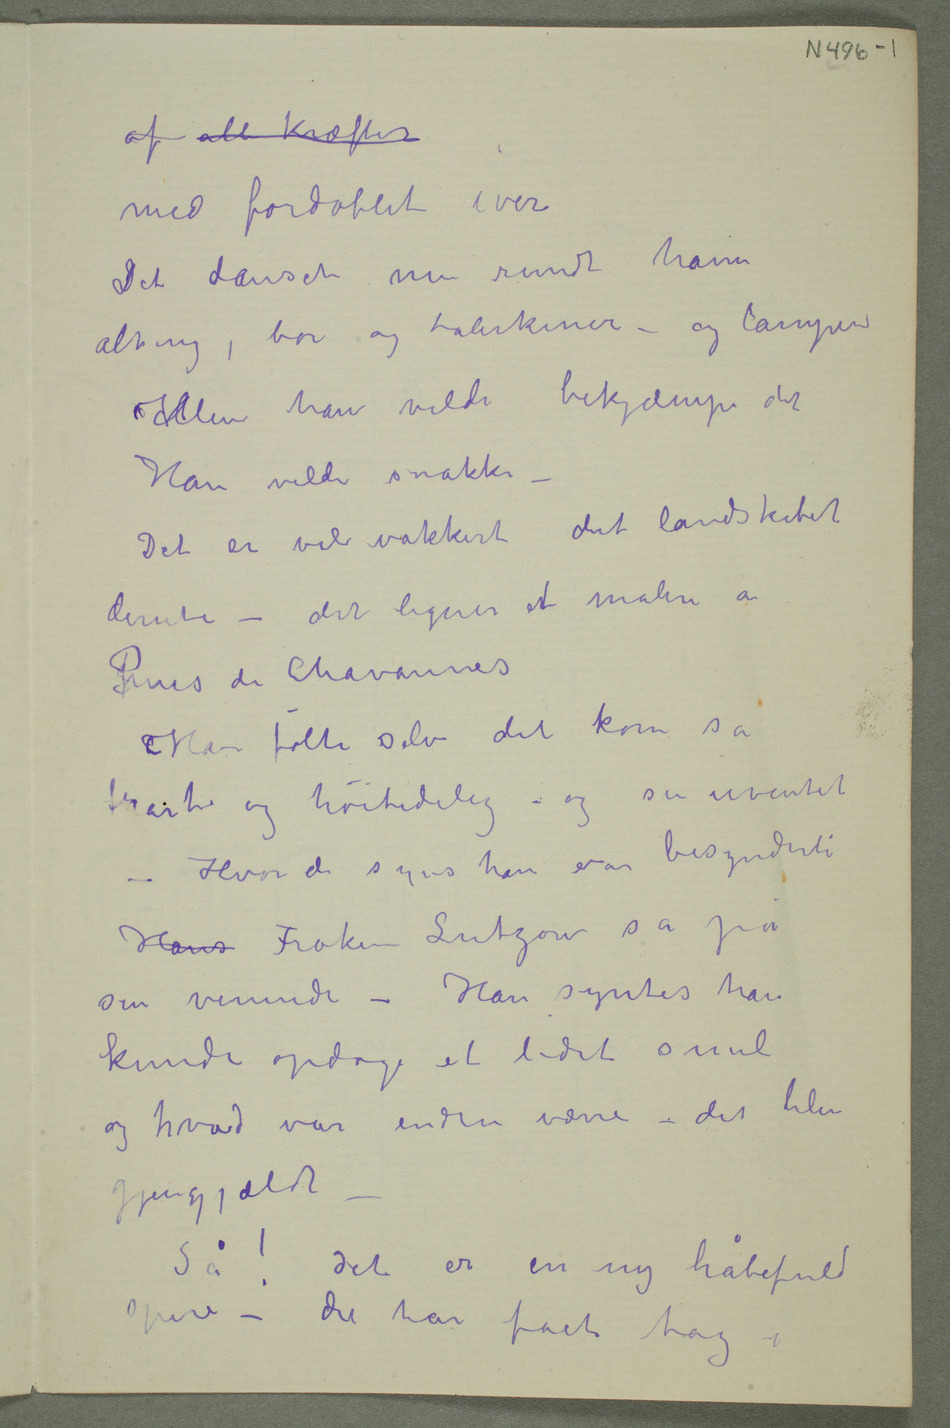 N496-1
af alle kræfter
med fordoblet iver
Det dansede nu rundt ham
alting, bor og talerkener – og lampen
Men han vilde bekjæmpe det
Han vilde snakke –
Det er vel vakkert det landskabet
derute – det ligner et maleri a
Puvis de Chavannes
Han følte selv det kom så
tvært og höitidelig – og så uventet
– Hvor de syns han var besynderli
Hans Frøken Lutzow så på
sin veninde – Han syntes han
kunde opdage et lidet smil
og hvad var enden værre – det blev
gjengjældt –
Så! det er en ny håbefuld
spire – de har faet tag i